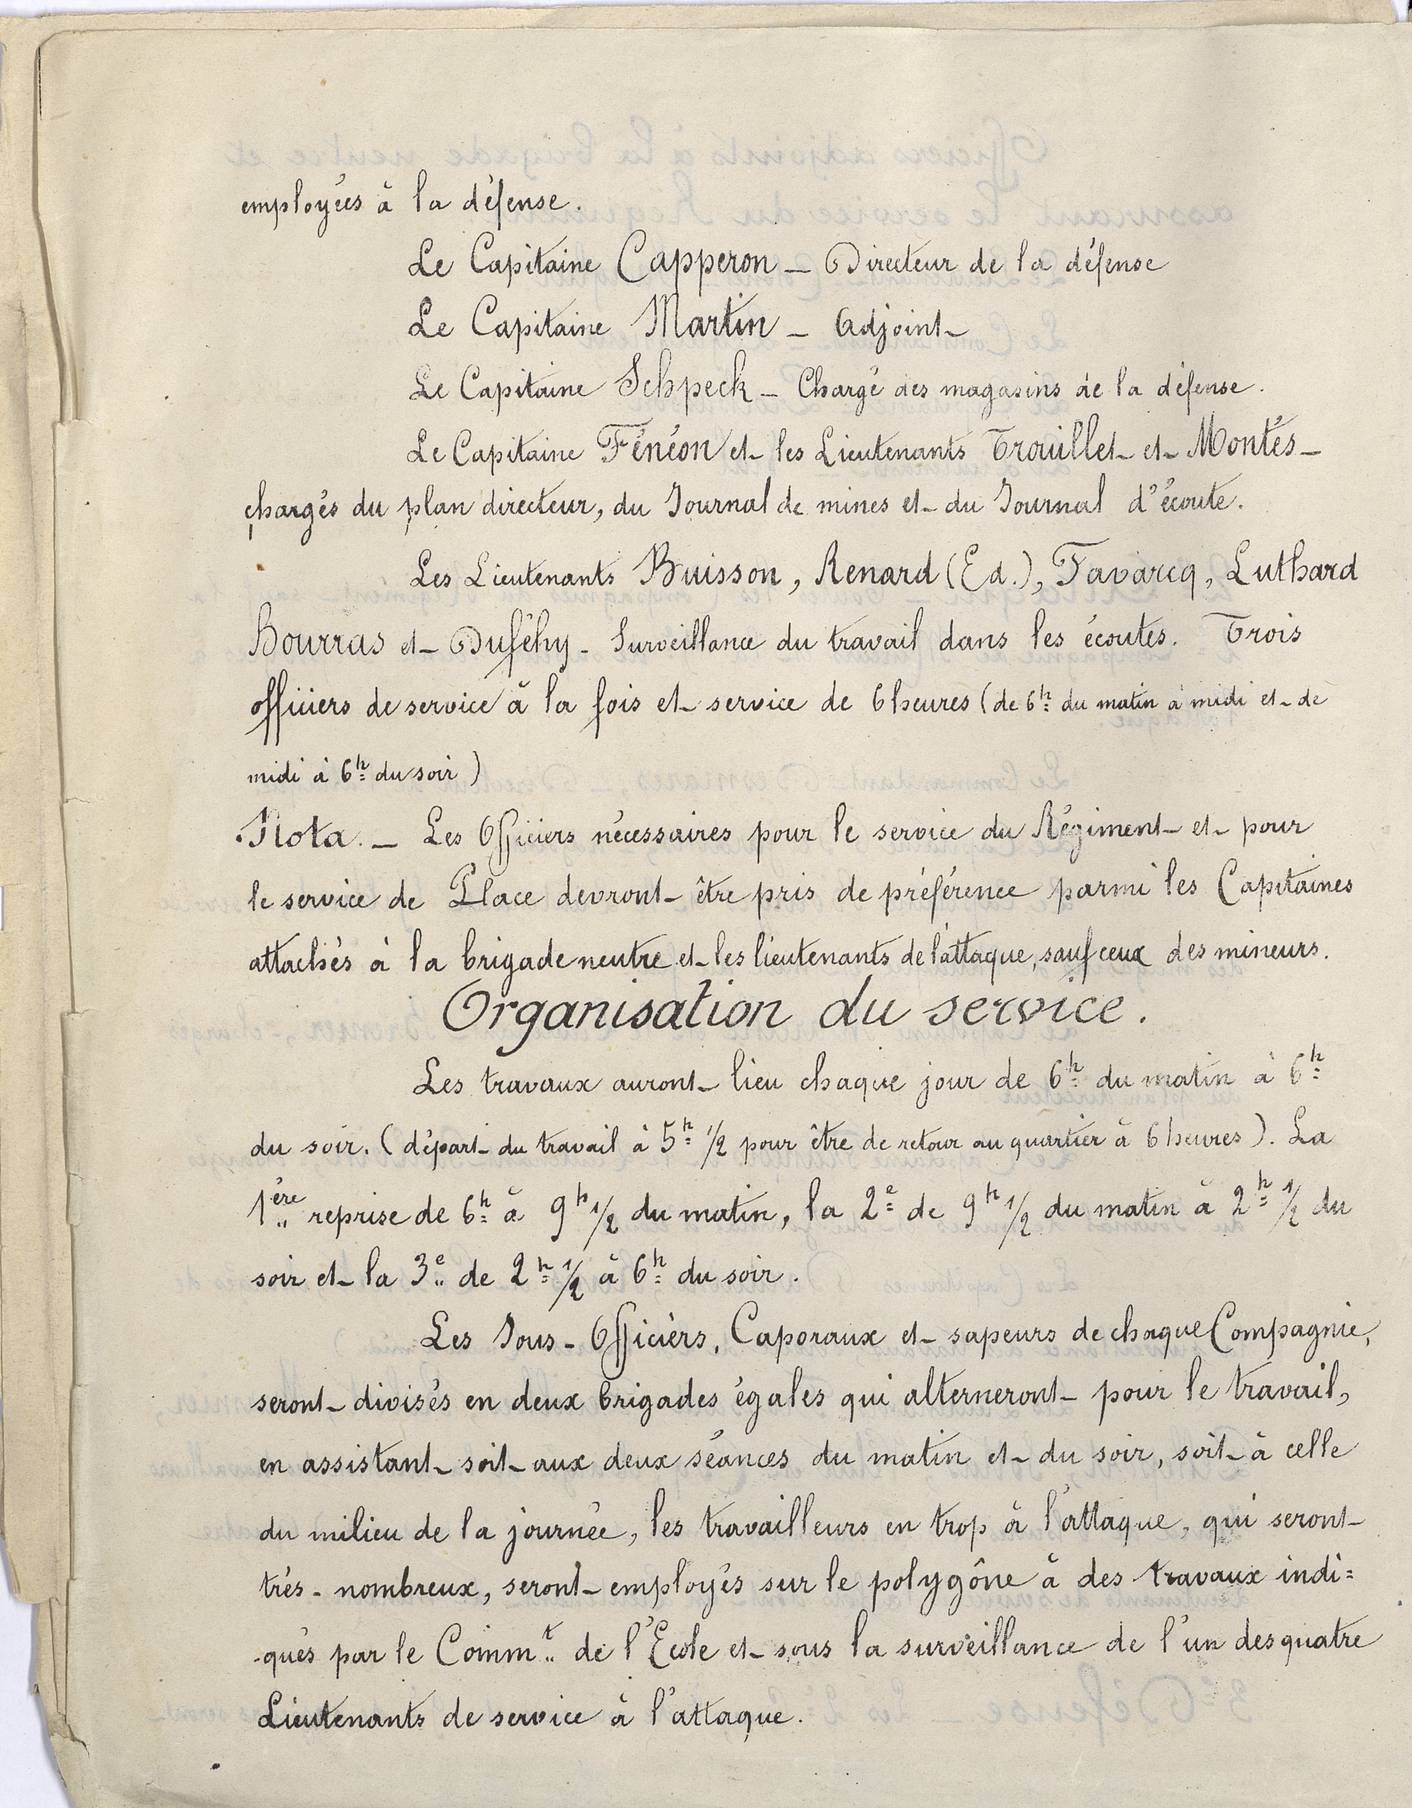 employées à la défense.
Le Capitaine Capperon – Directeur de la défense
Le Capitaine Martin – Adjoint
Le Capitaine Schpeck – Chargé des magasins de la défense.
Le Capitaine Fénéon et les Lieutenants Trouillet et Montès
chargés du plan directeur, du Journal de mines et du Journal d'écoute.
Les Lieutenants Buisson, Renard (Ed.), Favarcq, Luthard
Bourras et Duféhy – Surveillance du travail dans les écoutes. Trois
officiers de service à la fois et service de 6 heures (de 6h du matin à midi et de
midi à 6h du soir)
Nota. – Les Officiers nécessaires pour le service du Régiment et pour
le service de Place devront être pris de préférence parmi les Capitaines
attachés à la brigade neutre et les lieutenants de l'attaque, sauf ceux des mineurs.
Organisation du service.
Les travaux auront lieu chaque jour de 6h du matin à 6h
du soir. (départ du travail à 5h 1/2 pour être de retour au quartier à 6 heures). La
1ère reprise de 6h à 9h 1/2 du matin, la 2e de 9h 1/2 du matin à 2h 1/2 du
soir et la 3e de 2h 1/2 à 6h du soir.
Les Sous-Officiers, Caporaux et sapeurs de chaque Compagnie,
seront divisés en deux brigades égales qui alterneront pour le travail,
en assistant soit aux deux séances du matin et du soir, soit à celle
du milieu de la journée, les travailleurs en trop à l'attaque, qui seront
très-nombreux, seront employés sur le polygône à des travaux indi=
-qués par le Commt de l'Ecole et sous la surveillance de l'un des quatre
Lieutenants de service à l'attaque.